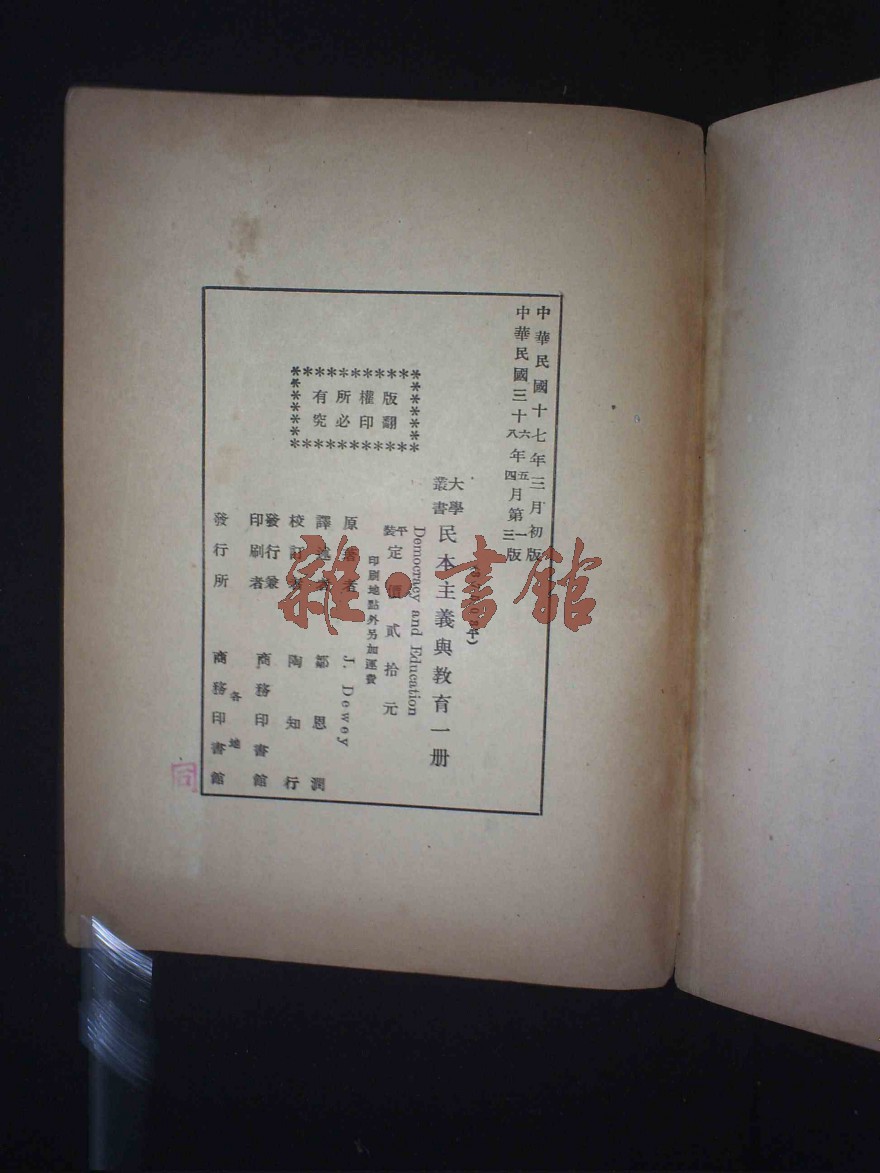 中華民國十七年三月初版
中華民國三十六年五月第一版
八 四 三
大學叢書 民本主義與教育一册
平)
Democracy and Education
平裝 定價 貳拾元
印刷地點外另加運費
版權所有
翻印必究
原著者 J. Dewey
譯述者 鄒恩潤
校訂者 陶知行
發行兼印刷者 商務印書館
發行所 各地 商務印書館
雜·書館